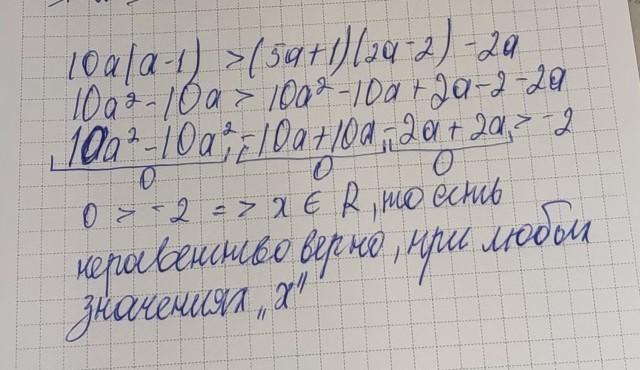 10a(a-1) > (5a+1)(2a-2) - 2a
10a² - 10a > 10a² - 10a + 2a - 2 - 2a
10a² - 10a² - 10a + 10a - 2a + 2a > -2
0 0 0
0 > -2 => x ∈ R, то есть
неравенство верно, при любых
значениях „x"